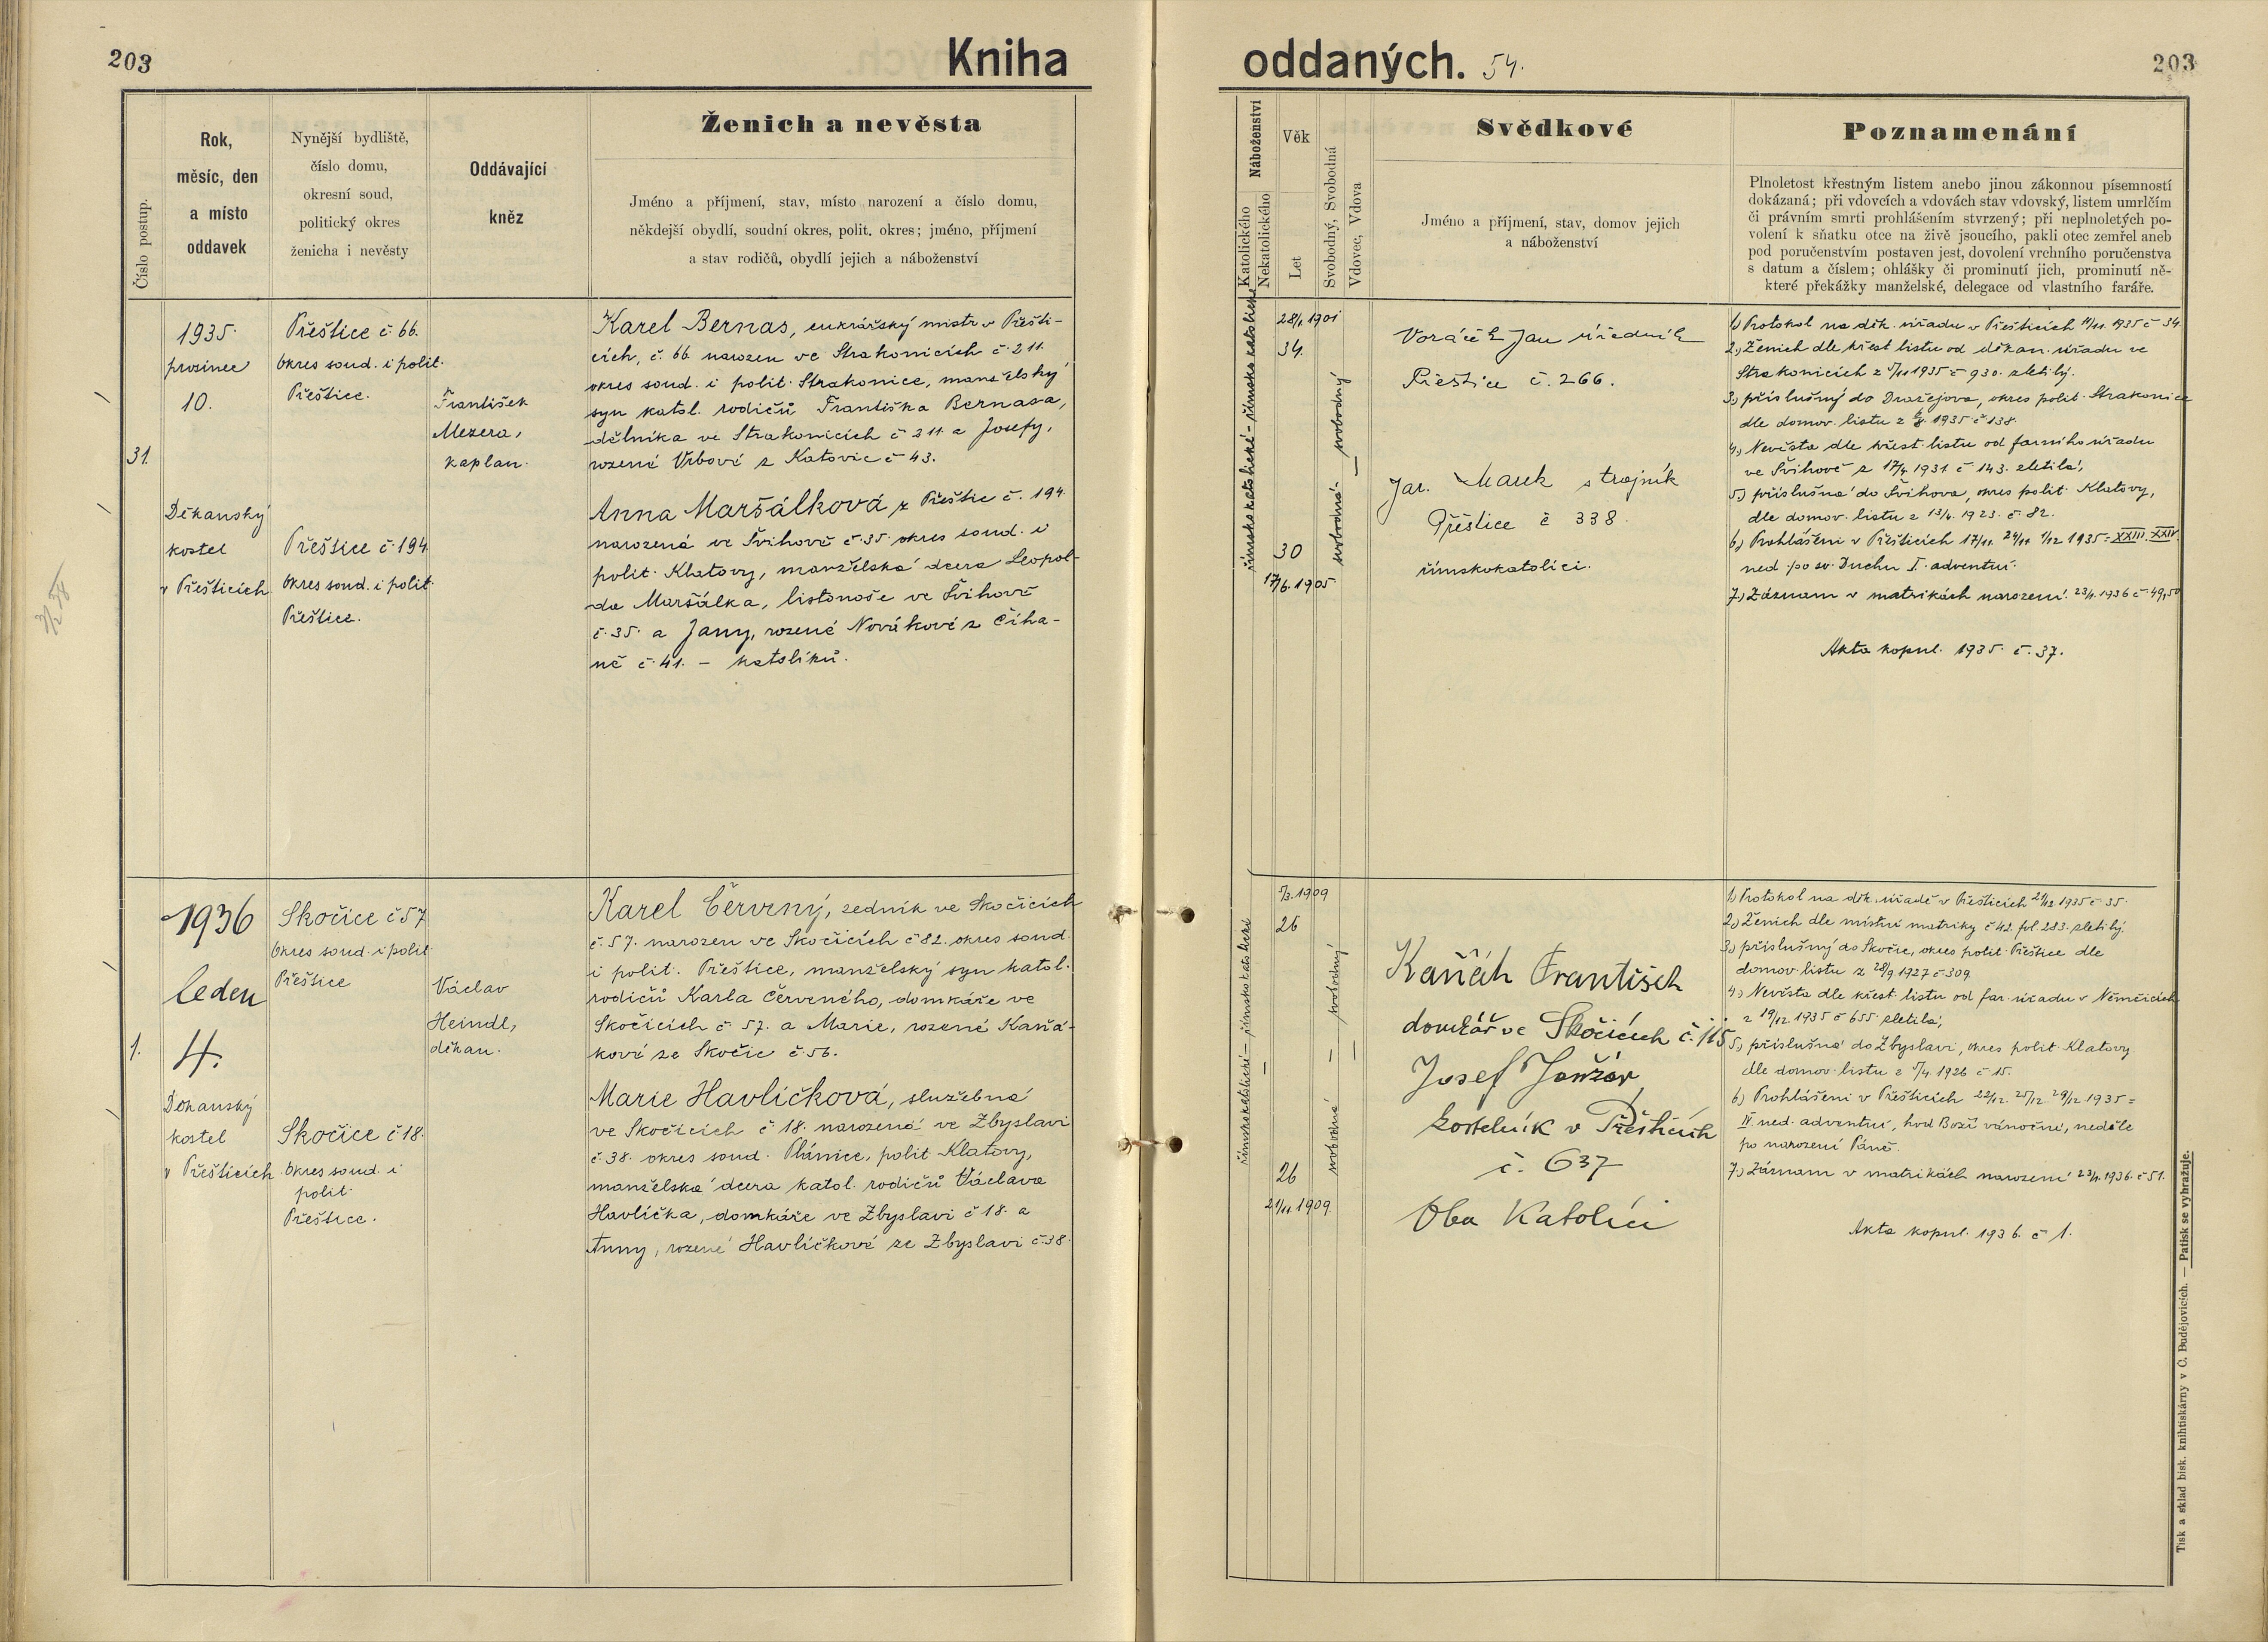 203
Kniha
oddaných. 54.
203
Číslo postup.
Rok,
měsíc, den
a místo
oddavek
Nynější bydliště,
číslo domu,
okresní soud,
politický okres
ženicha i nevěsty
Oddávající
kněz
Ženich a nevěsta
Jméno a příjmení, stav, místo narození a číslo domu,
někdejší obydlí, soudní okres, polit. okres; jméno, příjmení
a stav rodičů, obydlí jejich a náboženství
Náboženství
Katolického
Nekatolického
Věk
Let
Svobodný, Svobodná
Vdovec, Vdova
Svědkové
Jméno a příjmení, stav, domov jejich
a náboženství
Poznamenání
Plnoletost křestným listem anebo jinou zákonnou písemností
dokázaná; při vdovcích a vdovách stav vdovský, listem umrlčím
či právním smrti prohlášením stvrzený; při neplnoletých po-
volení k sňatku otce na živě jsoucího, pakli otec zemřel aneb
pod poručenstvím postaven jest, dovolení vrchního poručenstva
s datum a číslem; ohlášky či prominutí jich, prominutí ně-
které překážky manželské, delegace od vlastního faráře.
31.
1935.
prosinec
10.
Děkanský
kostel
v Přešticích
Přeštice č. 66.
Okres soud. i polit.
Přeštice.
Přeštice č. 194
Okres soud. i polit.
Přeštice.
František
Mezera,
kaplan.
Karel Bernas, cukrářský mistr v Přešti-
cích, č. 66. narozen ve Strakonicích č. 211.
okres soud. i polit. Strakonice, manželský
syn katol. rodičů Františka Bernasa,
dělníka ve Strakonicích č 211 a Josefy,
rozené Vrbové z Katovic č 43.
Anna Maršálková z Přeštic č. 194.
narozená ve Švihově č. 35. okres soud. i
polit. Klatovy, manželská dcera Leopol-
da Maršálka, listonoše ve Švihově
č. 35. a Jany, rozené Novákové z Číha-
ně č. 41. – katolíků.
římskokatolické – římsko katolické
28/1. 1901
34.
30
17/6. 1905
svobodná – svobodný
Voráček Jan úředník
Přeštice č. 266.
Jar. Marek strojník
Přeštice č 338.
římskokatolíci.
1) Protokol na děk. úřadu v Přešticích 11/11. 1935 č 34.
2.) Ženich dle křest. listu od děkan. úřadu ve
Strakonicích z 5/11 1935 č 930. zletilý.
3.) příslušný do Dražejova, okres polit. Strakonice
dle domov. listu z 6/8. 1935 č 138.
4.) Nevěsta dle křest. listu od farního úřadu
ve Švihově z 17/4. 1931 č 143. zletilá,
5.) příslušná do Švihova, okres polit. Klatovy,
dle domov. listu z 13/4. 1923. č. 82.
6.) Prohlášeni v Přešticích 17/11. 24/11 1/12 1935 = XXIII. XXIV.
ned. po sv. Duchu I. adventní.
7.) Záznam v matrikách narození. 23/1. 1936 č. 49, 50
Akta kopul. 1935. č. 37.
1.
1936
leden
4.
Děkanský
kostel
v Přešticích
Skočice č 57
Okres soud. i polit.
Přeštice
Skočice č 18.
Okres soud. i
polit.
Přeštice.
Václav
Heindl,
děkan.
Karel Červený, zedník ve Skočicích
č. 57. narozen ve Skočicích č 82. okres soud.
i polit. Přeštice, manželský syn katol.
rodičů Karla Červeného, domkáře ve
Skočicích č 57. a Marie, rozené Kaňá-
kové ze Skočic č. 56.
Marie Havlíčková, služebná
ve Skočicích č 18. narozená ve Zbyslavi
č. 38. okres soud. Plánice, polit. Klatovy,
manželská dcera katol. rodičů Václava
Havlíčka, domkáře ve Zbyslavi č 18. a
Anny, rozené Havlíčkové ze Zbyslavi č. 38.
římskokatolické – římskokatolické
5/3. 1909
26
26
21/11. 1909.
svobodná – svobodný
Kaňák František
domkář ve Skočicích č. 115
Josef
kostelník v Přešticích
č. 637
Oba Katolíci
1) Protokol na děk. úřadě v Přešticích 21/12 1935 č 35.
2.) Ženich dle místní matriky č 42. fol. 283. zletilý.
3.) příslušný do Skočic, okres polit. Přeštice dle
domov. listu z 28/9 1927 č 309.
4.) Nevěsta dle křest. listu od far. úřadu v Němčicích
z 19/12. 1935 č 655. zletilá,
5.) příslušná do Zbyslavi, okres polit. Klatovy
dle domov. listu z 5/4. 1926 č 15.
6.) Prohlášeni v Přešticích 22/12. 25/12. 29/12 1935 =
IV ned. adventní, hod Boží vánoční, neděle
po narození Páně.
7.) Záznam v matrikách narození 23/1. 1936. č 51.
Akta kopul. 1936. č 1.
Tisk a sklad bisk. knihtiskárny v Č. Budějovicích. — Patisk se vyhražuje.